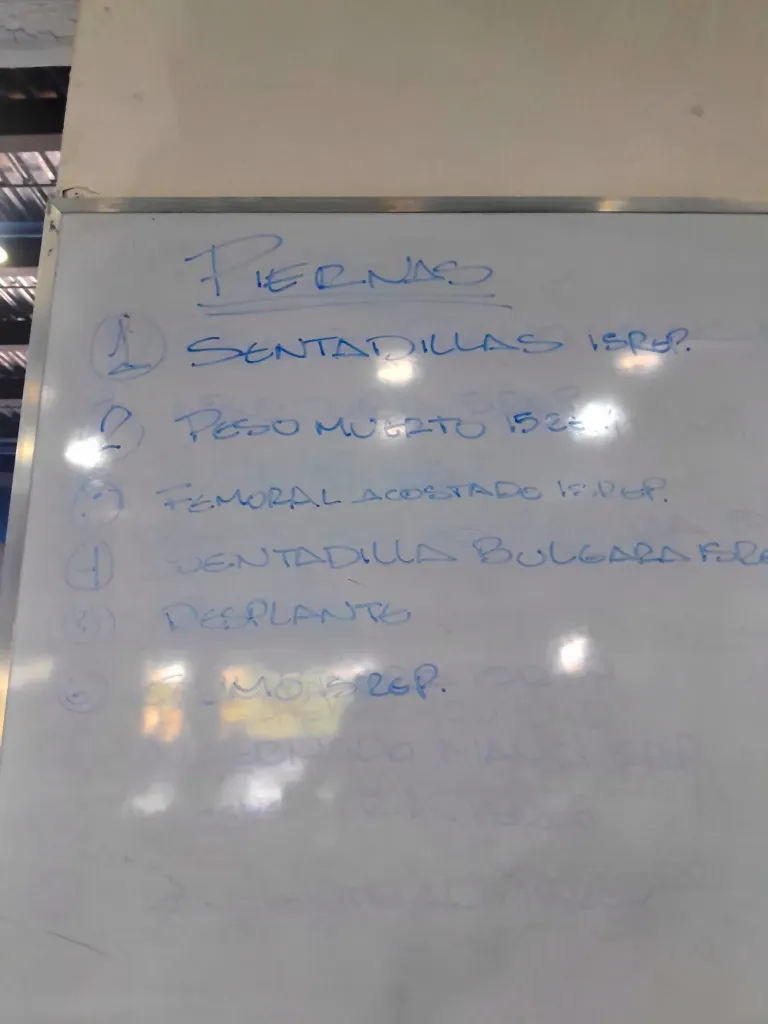 PIERNAS
1 SENTADILLAS 15 REP.
2 PESO MUERTO 15
3 FEMORAL ACOSTADO 15 REP.
4 SENTADILLA BULGARA 15 RE
DESPLANTE
6 SUMO 15 REP.